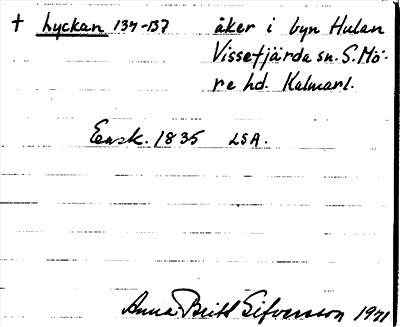 † Lyckan 134-137 åker i byn Hulan
Vissefjärda sn. S. Mö-
re hd. Kalmarl.
Ensk. 1835 LSA.
Anna-Britt Sifversson 1971